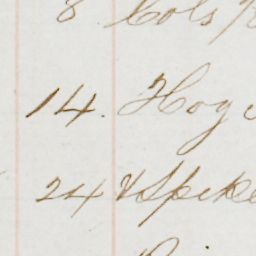 8 Cols
14. Hog
24 & Spike